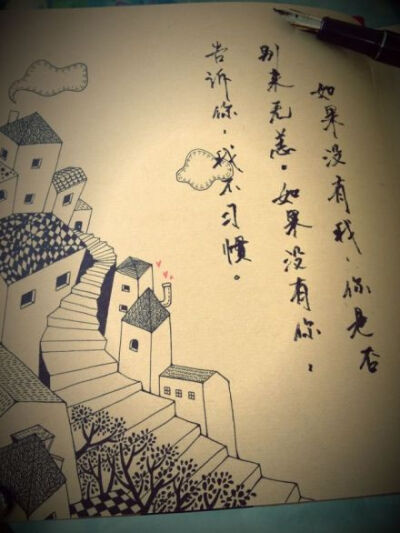 如果没有我、你是否
别来无恙。如果没有你、
告诉你，我不习惯。